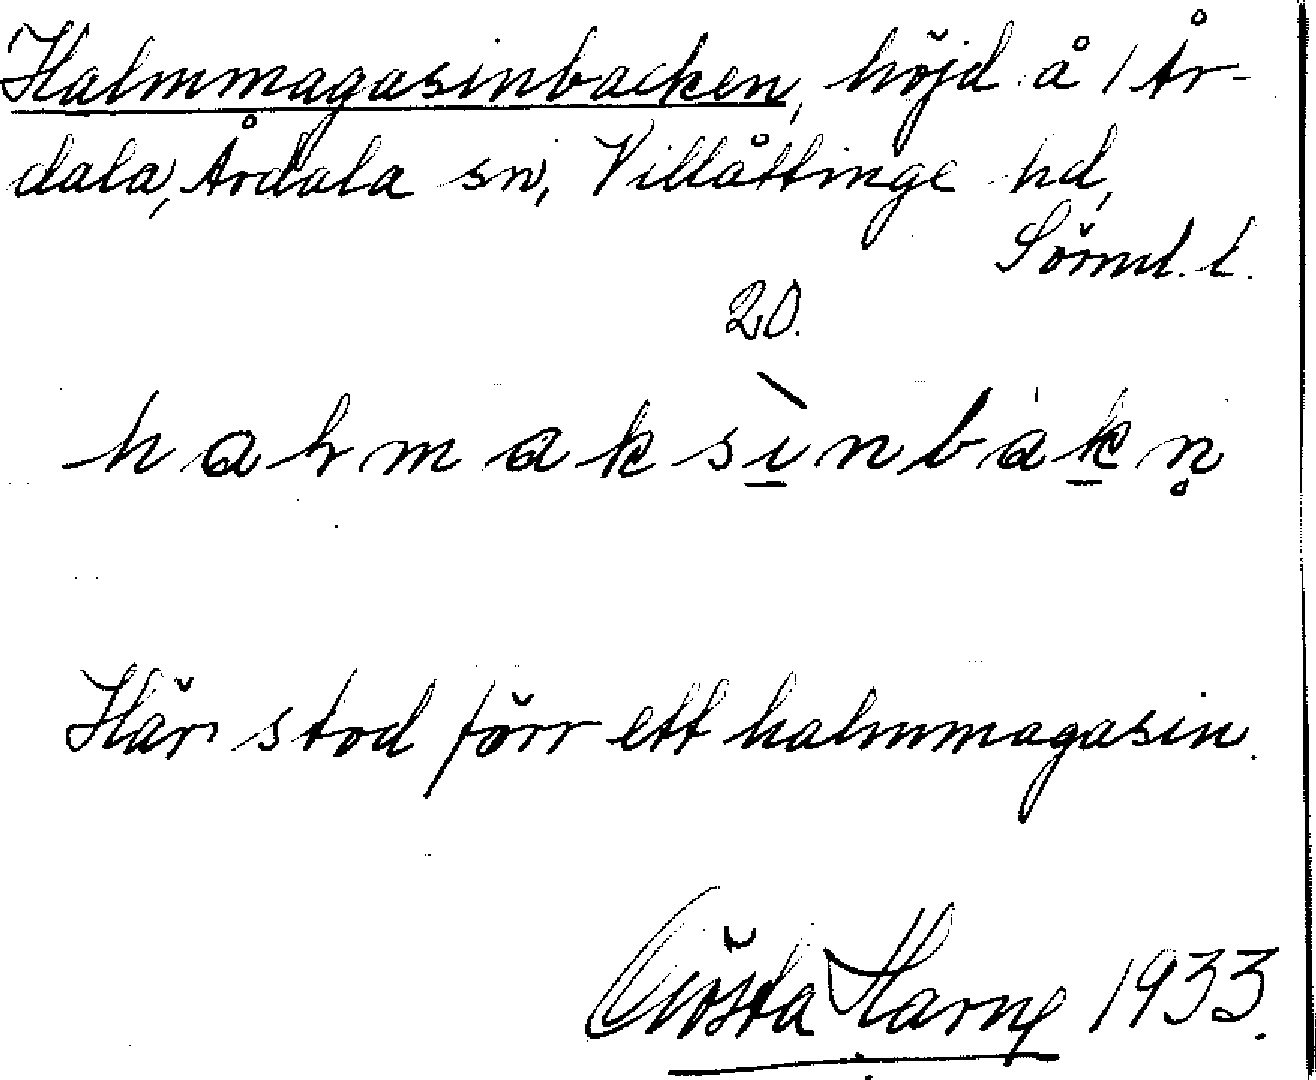 Halmmagasinbacken, höjd å 1 År-
dala, Årdala sn, Villåttinge hd,
Sörml. l.
20.
Här stod förr ett halmmagasin.
Gösta Harne 1933.